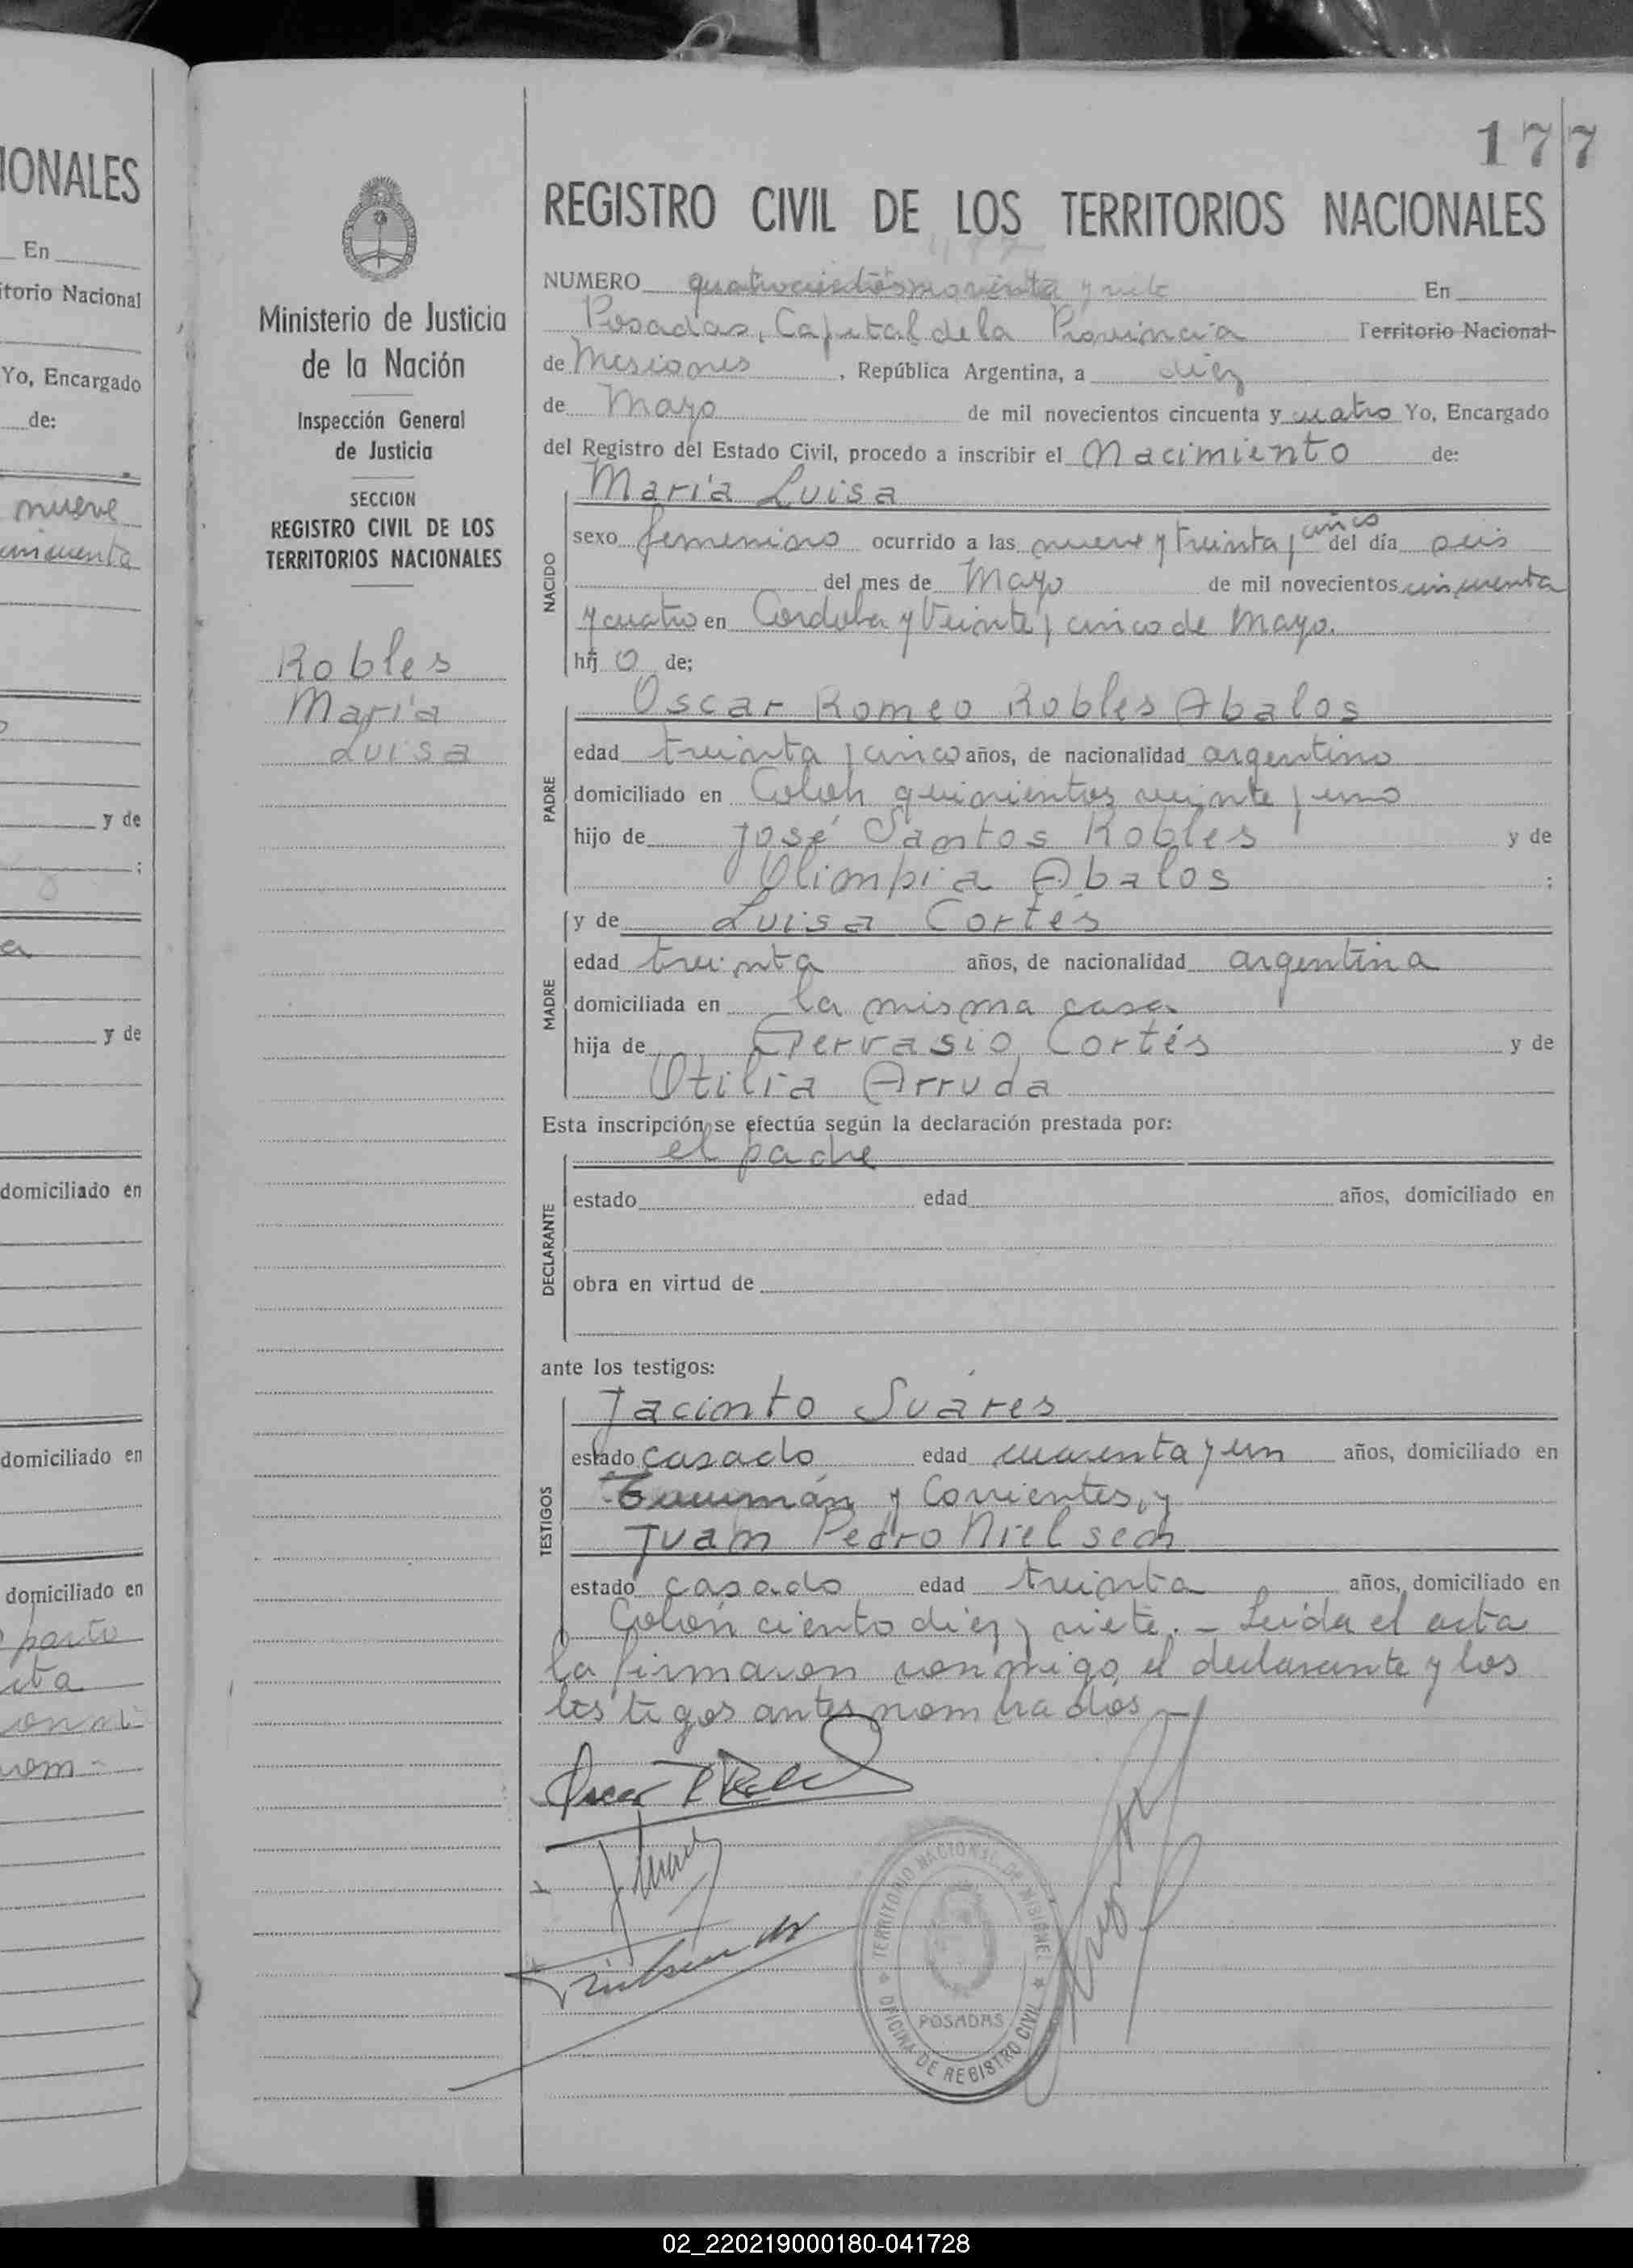 IONALES
En
itorio Nacional
Yo, Encargado
de:
nueve
cincuenta
y de
y de
domiciliado en
domiciliado en
domiciliado en
parto
Ministerio de Justicia
de la Nación
Inspección General
de Justicia
SECCION
REGISTRO CIVIL DE LOS
TERRITORIOS NACIONALES
Robles
María
Luisa
177
REGISTRO CIVIL DE LOS TERRITORIOS NACIONALES
NUMERO cuatrocientos noventa y siete En
Posadas, Capital de la Provincia Territorio Nacional
de Misiones, República Argentina, a diez
de Mayo de mil novecientos cincuenta y cuatro Yo, Encargado
del Registro del Estado Civil, procedo a inscribir el Nacimiento de:
María Luisa
sexo femenino ocurrido a las nueve y treinta y cinco del día seis
del mes de Mayo de mil novecientos cincuenta
y cuatro en Cordoba y Veinte y cinco de Mayo.
NACIDO
hij o de;
Oscar Romeo Robles Abalos
edad treinta y cinco años, de nacionalidad argentino
domiciliado en Colón quinientos veinte y uno
PADRE
hijo de José Santos Robles y de
Olimpia Abalos ;
y de Luisa Cortés
edad treinta años, de nacionalidad argentina
domiciliada en la misma casa
MADRE
hija de Gervasio Cortés y de
Otilia Arruda
Esta inscripción se efectúa según la declaración prestada por:
el padre
estado edad años, domiciliado en
DECLARANTE
obra en virtud de
ante los testigos:
Jacinto Suáres
estado casado edad cuarenta y un años, domiciliado en
Tucumán y Corrientes, y
TESTIGOS
Juan Pedro Nielsen
estado casado edad treinta años, domiciliado en
Colón ciento diez y siete. - Leída el acta
la firmaron conmigo, el declarante y los
testigos antes nombrados -
Oscar R Robles
TERRITORIO NACIONAL DE MISIONES
POSADAS
OFICINA DE REGISTRO CIVIL
02_220219000180-041728